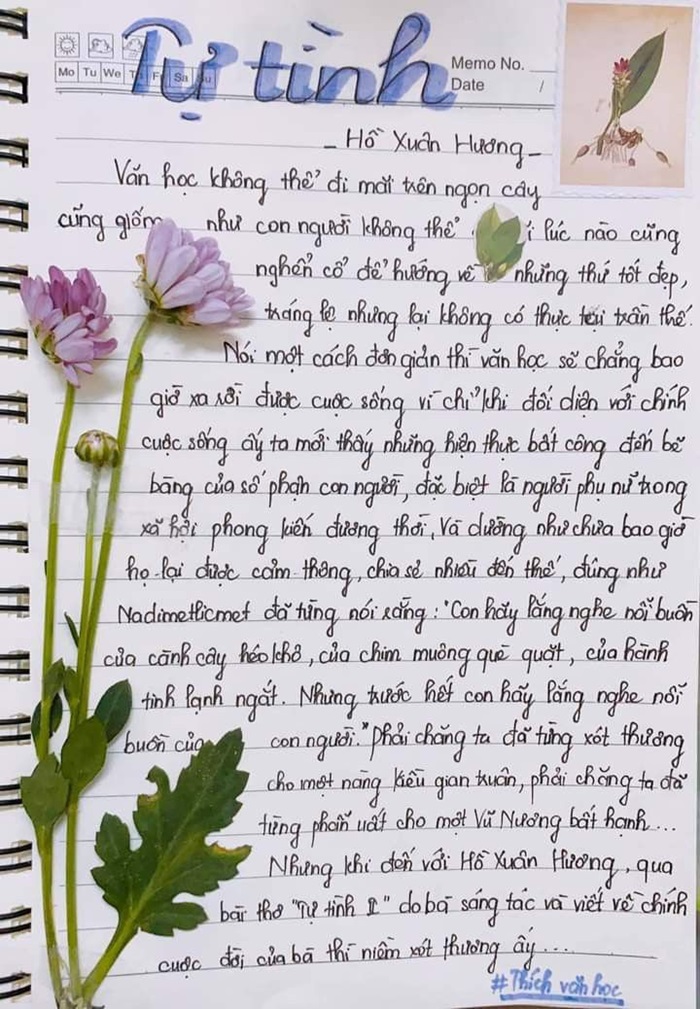 Tự tình
Memo No.
Mo Tu We Th Fr Sa Su
Date /
- Hồ Xuân Hương -
Văn học không thể đi mãi trên ngọn cây
cũng giống như con người không thể lúc nào cũng
nghển cổ để hướng về những thứ tốt đẹp,
tráng lệ nhưng lại không có thực tại trần thế.
Nói một cách đơn giản thì văn học sẽ chẳng bao
giờ xa rời được cuộc sống vì chỉ khi đối diện với chính
cuộc sống ấy ta mới thấy những hiện thực bất công đến bẽ
bàng của số phận con người, đặc biệt là người phụ nữ trong
xã hội phong kiến đương thời. Và dường như chưa bao giờ
họ lại được cảm thông, chia sẻ nhiều đến thế, đúng như
Nadimetlicmet đã từng nói rằng: "Con hãy lắng nghe nỗi buồn
của cành cây héo khô, của chim muông què quặt, của hành
tinh lạnh ngắt. Nhưng trước hết con hãy lắng nghe nỗi
buồn của con người." Phải chăng ta đã từng xót thương
cho một nàng Kiều gian truân, phải chăng ta đã
từng phẫn uất cho một Vũ Nương bất hạnh...
Nhưng khi đến với Hồ Xuân Hương, qua
bài thơ "Tự tình II" do bà sáng tác và viết về chính
cuộc đời của bà thì niềm xót thương ấy...
#Thích văn học